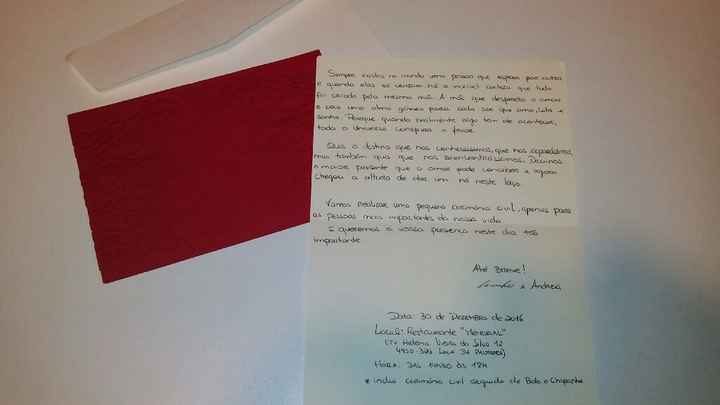 Sempre existe no mundo uma pessoa que espera por outra
e quando elas se cruzam há a incrível certeza que tudo
foi criado pela mesma mão. A mão que desperta o amor
e cria uma alma gémea para cada ser que ama, luta e
sonha. Porque quando realmente algo tem de acontecer,
todo o Universo conspira a favor.
Quis o destino que nos conhecêssemos, que nos separássemos,
mas também quis que nos reencontrássemos. Demos
o maior presente que o amor pode conceber e agora
chegou a altura de dar um nó neste laço.
Vamos realizar uma pequena cerimónia civil, apenas para
as pessoas mais importantes da nossa vida.
E queremos a vossa presença neste dia tão
importante.
Até Breve!
e Andreia
Data: 30 de Dezembro de 2016
Local: Restaurante
(Tv Helena Vieira da Silva 12
Hora: das 14h30 às 18H
* inclui cerimónia civil seguida de Bolo e Champanhe